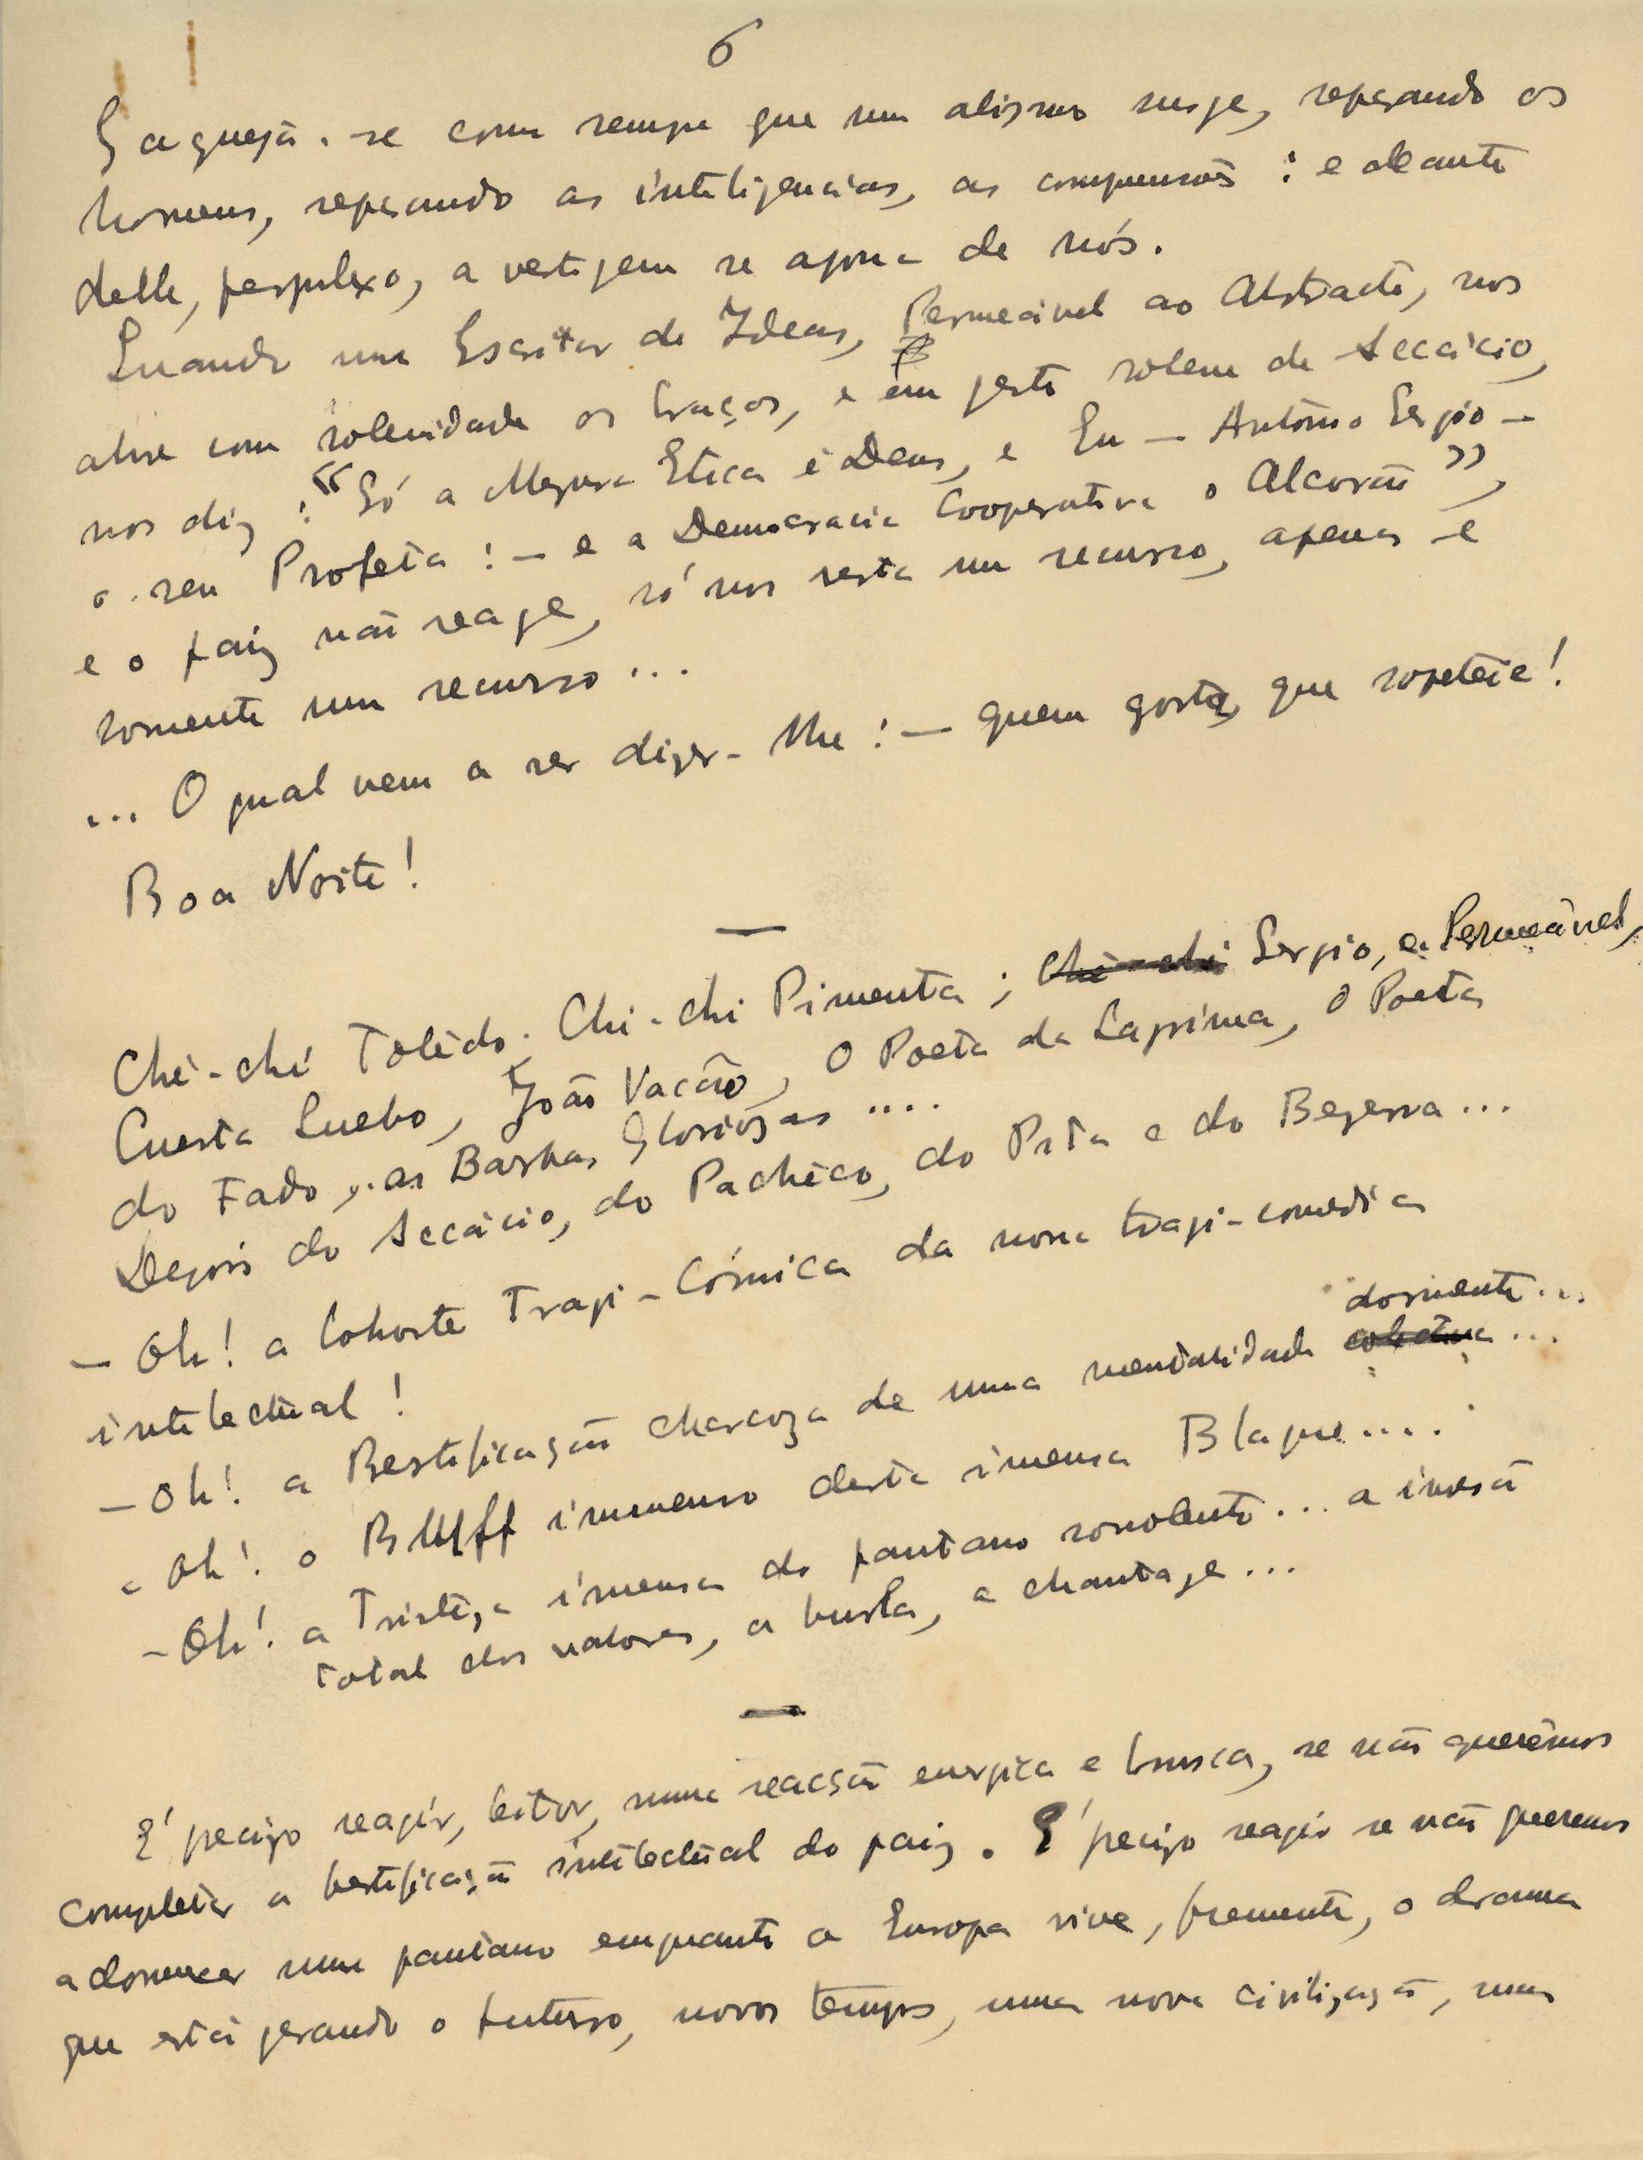 6
Gagueja-se como sempre que um abismo surge, separando os
homens, separando as inteligencias, as compreensões : e deante
delle, perplexo, a vertigem se apossa de nós.
Quando um Escritor de Ideas, Permeável ao Abstracto, nos
abre com solenidade os braços, e em gesto solene de Accácio,
nos diz : "Só a Mezura Etica é Deus, e Eu — António Sergio —
o seu Profeta ! — e a Democracia Cooperativa o Alcorão",
e o paiz não reage, só nos resta um recurso, apenas e
somente um recurso ...
... O qual vem a ser dizer-lhe ! — quem gosta, que sopeteie !
Boa Noite !
Ché-ché Tolèdo, Chi-chi Pimenta ; Ché-ché Sergio, o Permeável,
Cuesta Luebo, João Vacão, O Poeta da Lagrima, O Poeta
do Fado, as Barbas Gloriozas ....
Depois do Accácio, do Pachéco, do Pita e do Bezerra ...
— Oh ! a Cohorte Tragi-Cómica da nossa tragi-comedia
intelectual !
dormente ...
— Oh ! a Bestificação charcoza de uma mentalidade ...
— Oh ! o Bluff immenso desta imensa Blague ....
— Oh ! a Tristeza imensa do pantano sonolento ... a inversão
total dos valores, a burla, a chantage ...
E' precizo reagir, leitor, numa reacção energica e brusca, se não querêmos
completar a bestificação intelectual do paiz. E' precizo reagir se não queremos
adormecer num pantano emquanto a Europa vive, fremente, o drama
que está gerando o futuro, novos tempos, uma nova civilização, uma